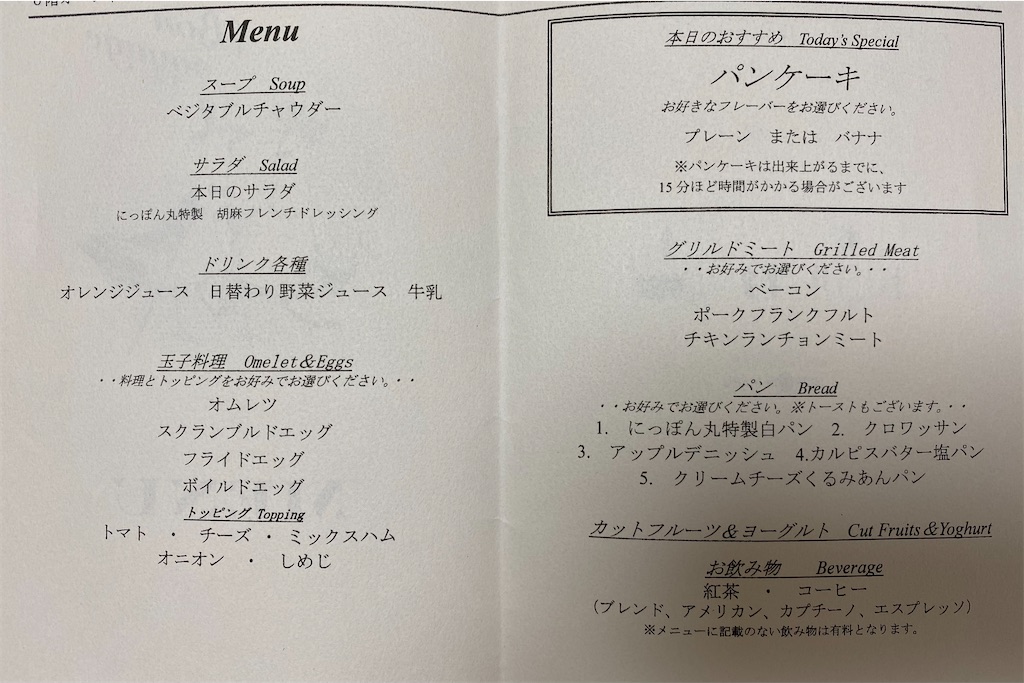 Menu
スープ Soup
ベジタブルチャウダー
サラダ Salad
本日のサラダ
にっぽん丸特製 胡麻フレンチドレッシング
ドリンク各種
オレンジジュース 日替わり野菜ジュース 牛乳
玉子料理 Omelet&Eggs
・・料理とトッピングをお好みでお選びください。・・
オムレツ
スクランブルドエッグ
フライドエッグ
ボイルドエッグ
トッピング Topping
トマト ・ チーズ ・ ミックスハム
オニオン ・ しめじ
本日のおすすめ Today's Special
パンケーキ
お好きなフレーバーをお選びください。
プレーン または バナナ
※パンケーキは出来上がるまでに、
15分ほど時間がかかる場合がございます
グリルドミート Grilled Meat
・・お好みでお選びください。・・
ベーコン
ポークフランクフルト
チキンランチョンミート
パン Bread
・・お好みでお選びください。※トーストもございます。・・
1. にっぽん丸特製白パン 2. クロワッサン
3. アップルデニッシュ 4.カルピスバター塩パン
5. クリームチーズくるみあんパン
カットフルーツ＆ヨーグルト Cut Fruits &Yoghurt
お飲み物 Beverage
紅茶 ・ コーヒー
（ブレンド、アメリカン、カプチーノ、エスプレッソ）
※メニューに記載のない飲み物は有料となります。